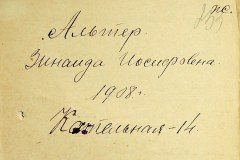 Альтер
Зинаида Иосифовна
1908 г.
Котельная-14.